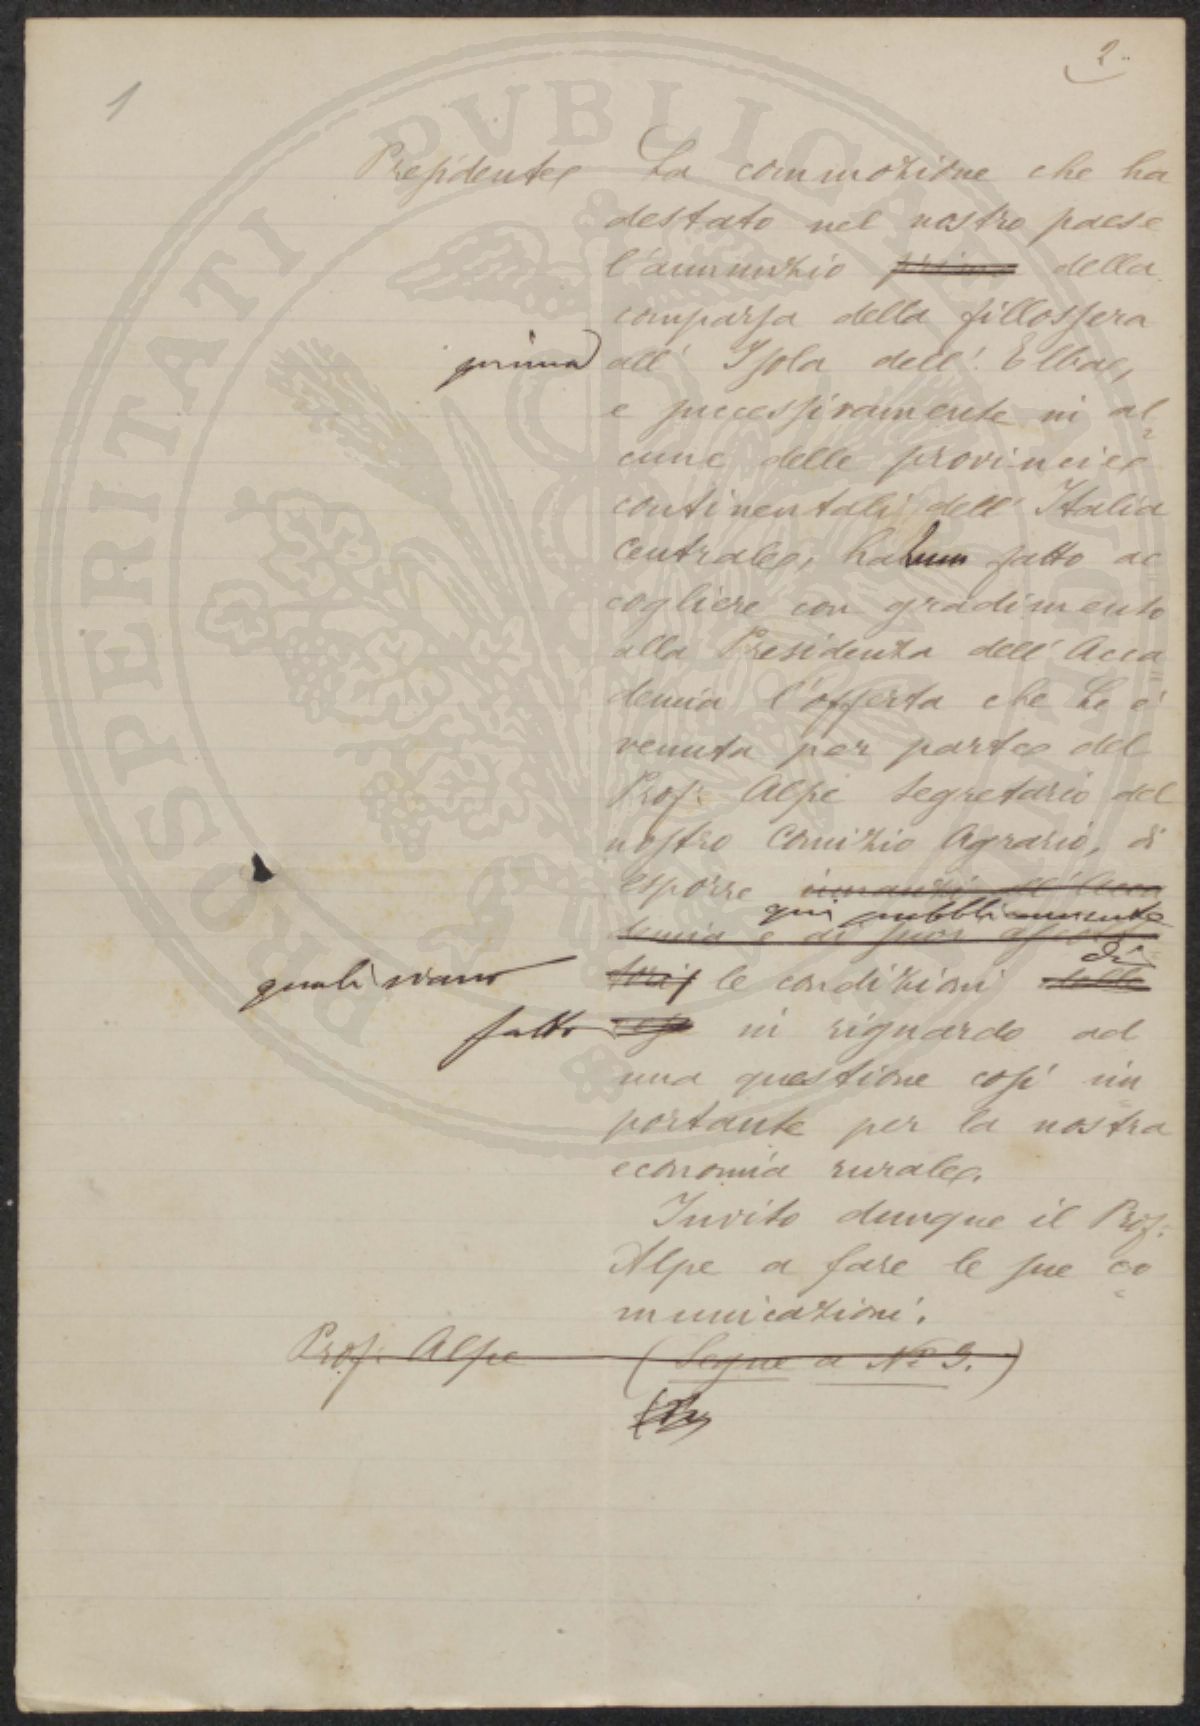 1
2.
Presidente La commozione che ha
destato nel nostro paese
l'annunzio prima della
comparsa della fillossera
prima all' Isola dell' Elba,
e successivamente in al
cune delle provincie
continentali dell' Italia
Centrale, ha fatto ac
cogliere con gradimento
alla Presidenza dell' Acca
demia l'offerta che Le è
venuta per parte del
Prof. Alpe Segretario del
nostro Comizio Agrario, di
esporre innanzi all' Acca
qui pubblicamente
demia e ai suoi
quali siano le condizioni delle di
fatto in riguardo ad
una questione così im
portante per la nostra
economia rurale.
Invito dunque il Prof.
Alpe a fare le sue co
municazioni.
Prof. Alpe (Segue a No 3.)
PVBLICAE
PROSPERITATI